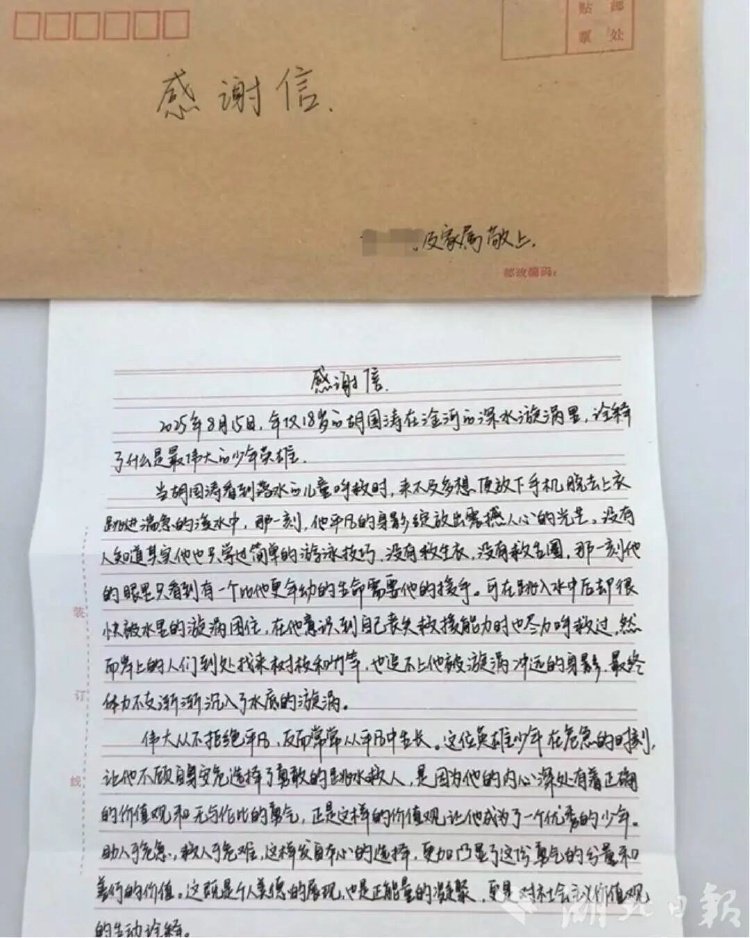 贴 邮
票 处
感谢信.
及家属敬上.
邮政编码:
感谢信.
2025年8月15日,年仅18岁的胡国涛在淦河的深水漩涡里,诠释
了什么是最伟大的少年英雄.
当胡国涛看到落水的儿童呼救时,来不及多想,放下手机脱去上衣
跳进湍急的淦水中,那一刻,他平凡的身影绽放出震撼人心的光芒。没有
人知道其实他也只学过简单的游泳技巧,没有救生衣,没有救生圈,那一刻他
的眼里只看到有一个比他更年幼的生命需要他的援手。可在跳入水中后却很
快被水里的漩涡困住,在他意识到自己丧失救援能力时也尽力呼救过,然
而岸上的人们到处找来树枝和竹竿,也追不上他被漩涡冲远的身影,最终
体力不支渐渐沉入了水底的漩涡。
伟大从不拒绝平凡,反而常常从平凡中生长。这位英雄少年在危急的时刻,
让他不顾自身安危选择了勇敢的跳水救人,是因为他的内心深处有着正确
的价值观和无与伦比的勇气,正是这样的价值观让他成为了一个优秀的少年。
助人于危急,救人于危难,这样发自本心的选择,更加凸显了这份勇气的分量和
善行的价值。这既是个人美德的展现,也是正能量的凝聚,更是对社会主义价值观
的生动诠释。
装
订
线
湖北日報